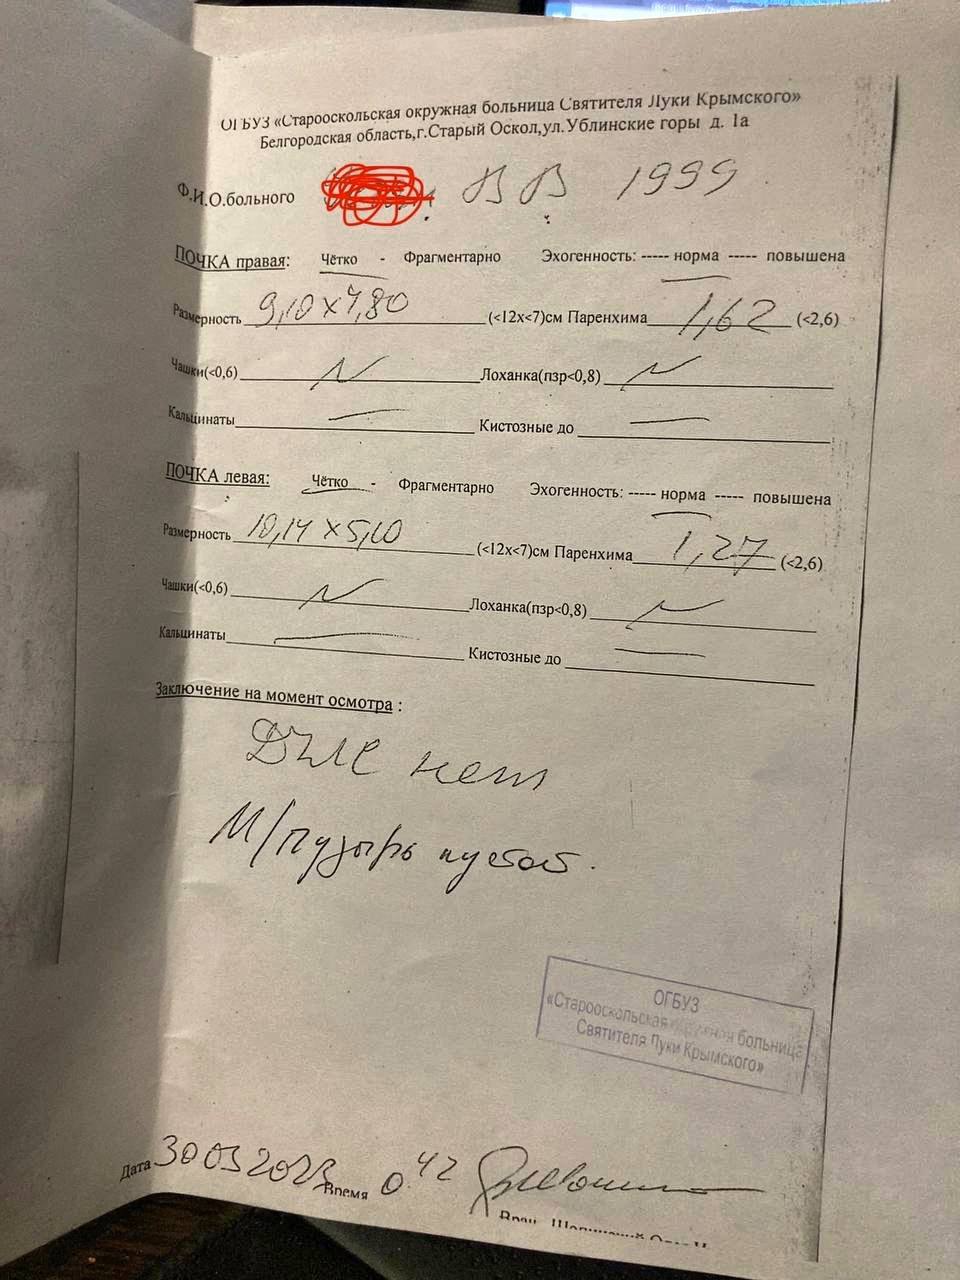 ОГБУЗ «Старооскольская окружная больница Святителя Луки Крымского»
Белгородская область,г.Старый Оскол,ул.Ублинские горы д. 1а
Ф.И.О.больного В В 1999
ПОЧКА правая: Чётко - Фрагментарно Эхогенность: ----- норма ----- повышена
Размерность 9,10 х 4,80 (<12х<7)см Паренхима 1,62 (<2,6)
Чашки(<0,6) N Лоханка(пзр<0,8) N
Кальцинаты — Кистозные до —
ПОЧКА левая: Чётко - Фрагментарно Эхогенность: ----- норма ----- повышена
Размерность 10,14 х 5,10 (<12х<7)см Паренхима 1,27 (<2,6)
Чашки(<0,6) N Лоханка(пзр<0,8) N
Кальцинаты — Кистозные до —
Заключение на момент осмотра :
ДЧЛС нет
М/пузырь пустой.
ОГБУЗ
«Старооскольская окружная больница
Святителя Луки Крымского»
Дата 30 03 2023 Время 0 42
Врач